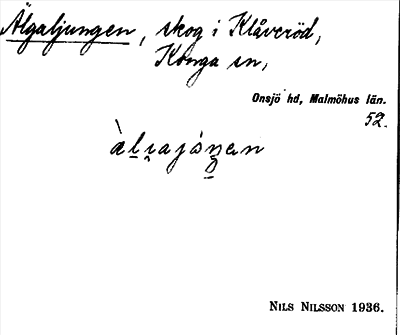 Älgaljungen, skog i Klåveröd,
Konga sn,
Onsjö hd, Malmöhus län.
52.
NILS NILSSON 1936.